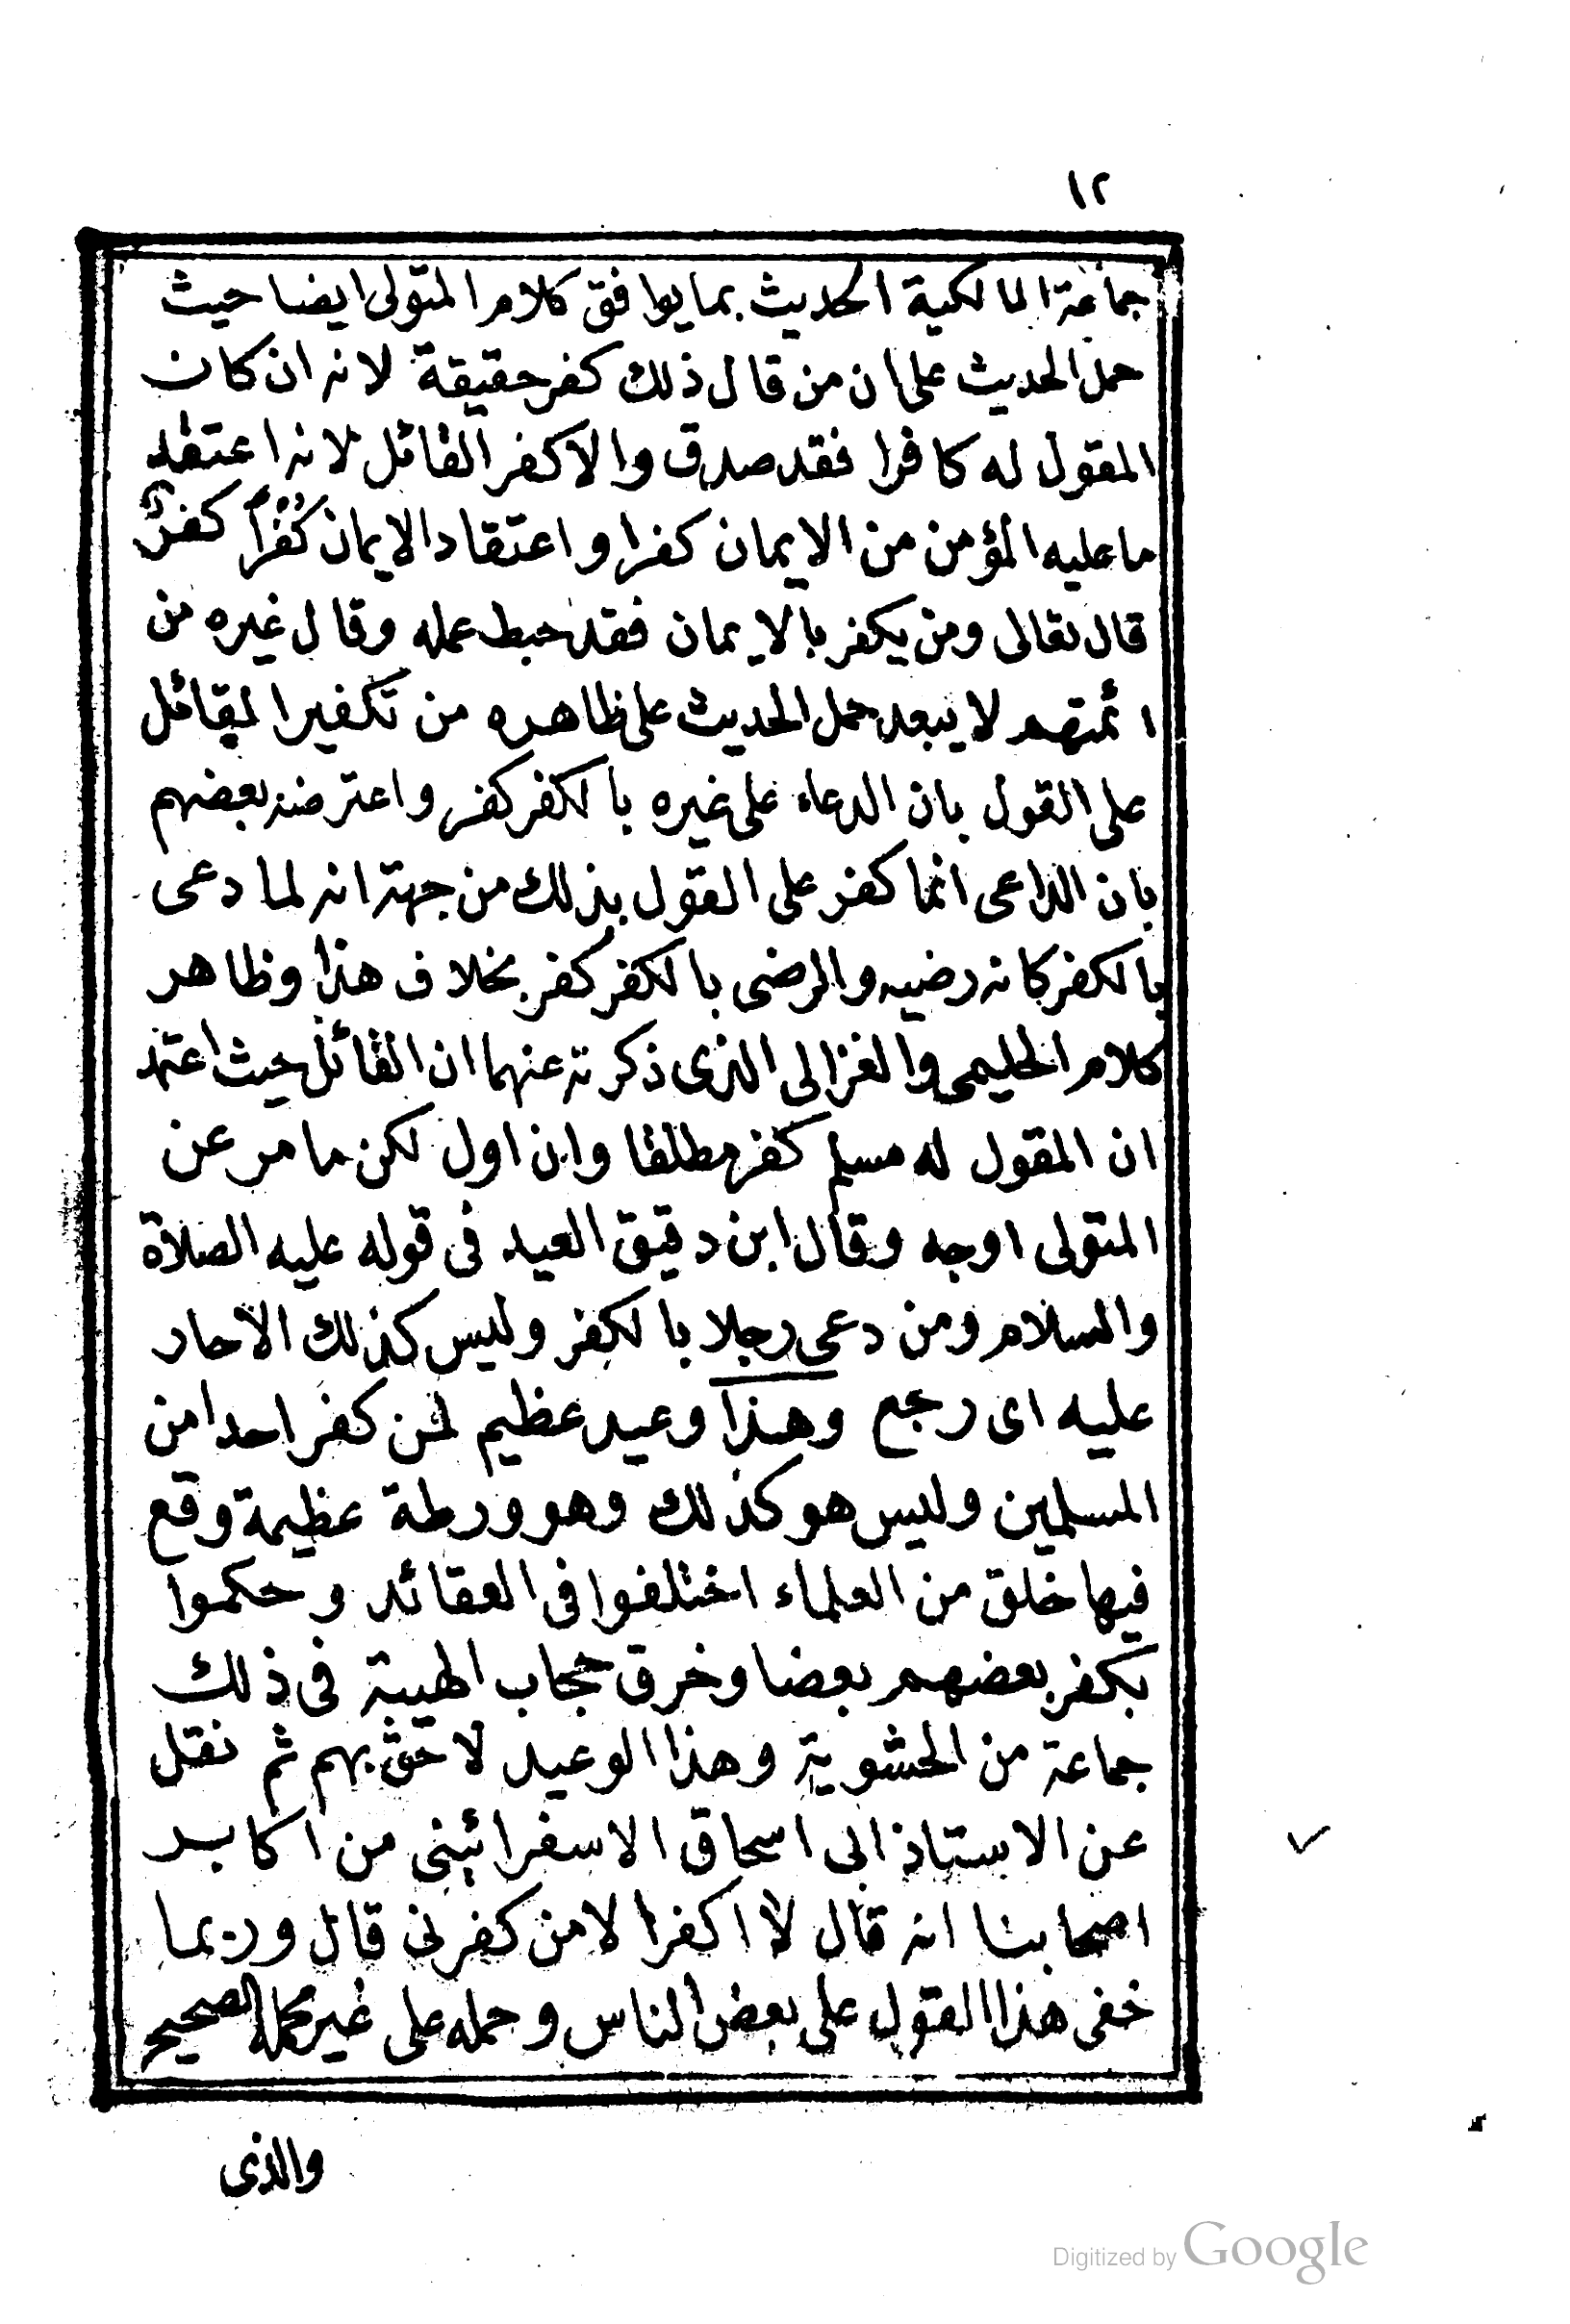 ١٢
جماعة المالكية الحديث بما يوافق كلام المتولى ايضا حيث
حمل الحديث على ان من قال ذلك كفر حقيقة لانه ان كان
المقول له كافرا فقد صدق والا كفر القائل لانه اعتقد
ما عليه المؤمن من الايمان كفرا واعتقاد الايمان كُفْراً كفرٌ
قال تعالى ومن يكفر بالايمان فقد حبط عمله وقال غيره من
ائمتهم لا يبعد حمل الحديث على ظاهره من تكفير القائل
على القول بان الدعاء على غيره بالكفر كفر واعترضه بعضهم
بان الداعى انما كفر على القول بذلك من جهة انه لما دعى
بالكفر كانه رضيه والرضى بالكفر كفر بخلاف هذا وظاهر
كلام الحليمى والغزالى الذى ذكرته عنهما ان القائل حيث اعتقد
ان المقول له مسلم كفر مطلقا وان اول لكن ما مر عن
المتولى اوجه وقال ابن دقيق العيد فى قوله عليه الصلاة
والسلام ومن دعى رجلا بالكفر وليس كذلك الا حار
عليه اى رجع وهذا وعيد عظيم لمن كفر احدا من
المسلمين وليس هو كذلك وهو ورطة عظيمة وقع
فيها خلق من العلماء اختلفوا فى العقائد وحكموا
بكفر بعضهم بعضا وخرق حجاب الهيبة فى ذلك
جماعة من الحشوية وهذا الوعيد لاحق بهم ثم نقل
عن الاستاذ ابى اسحاق الاسفرائينى من اكابر
اصحابنا انه قال لا اكفر الا من كفرنى قال وربما
خفى هذا القول على بعض الناس وحمله على غير محمله الصحيح
والذى
Digitized by Google